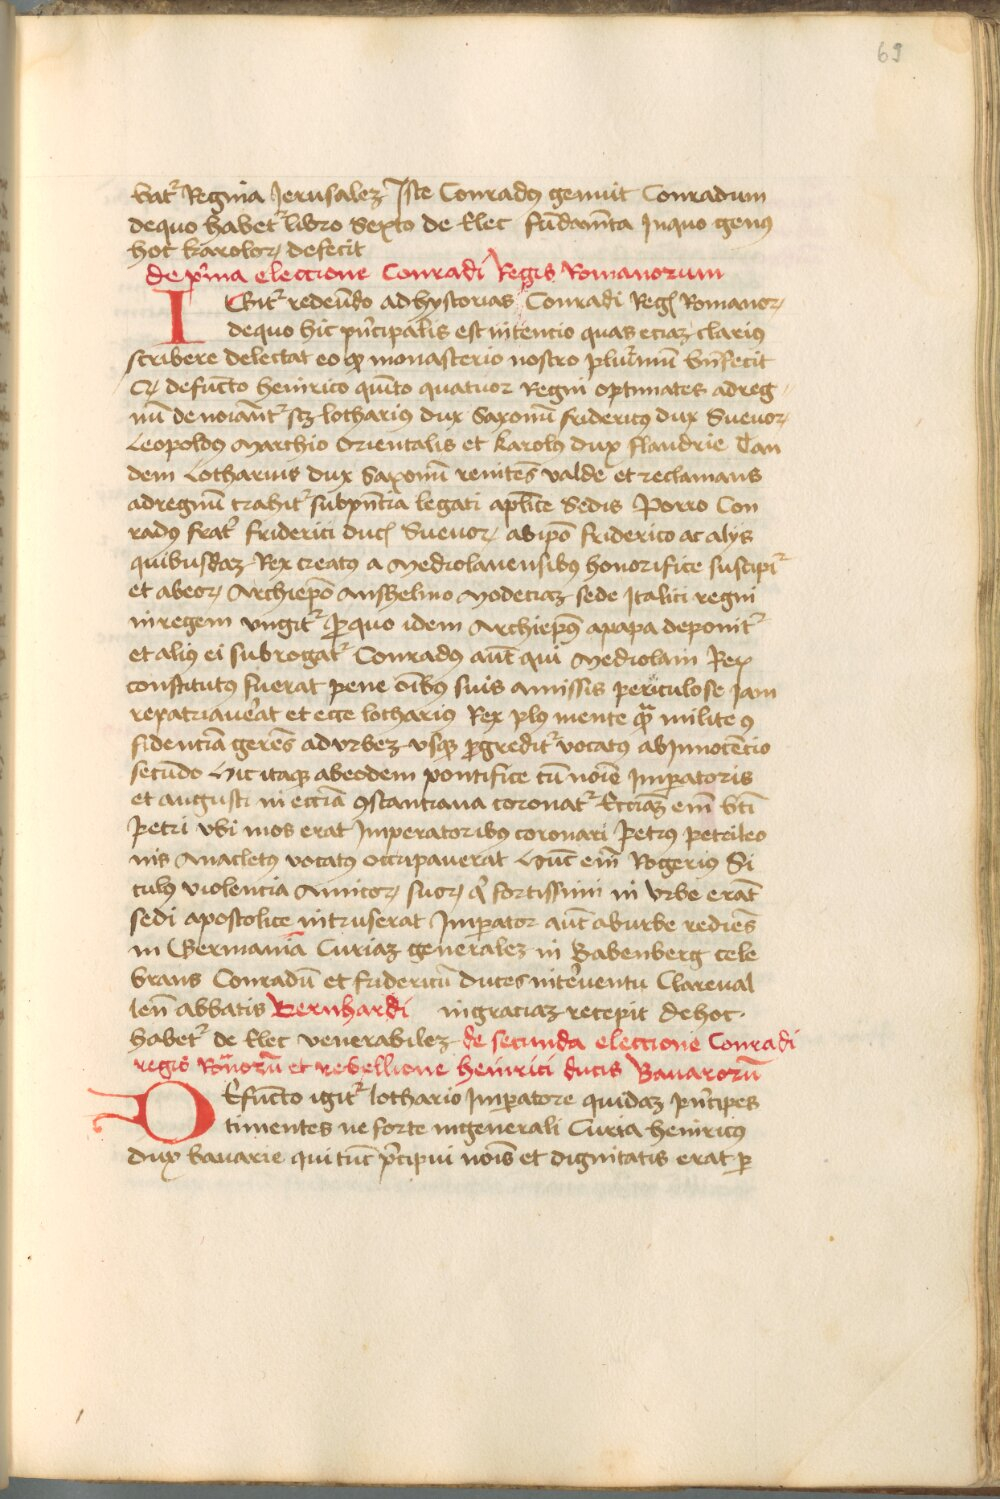 69
batʼ Regina Jerusalez Iste Conradꝰ genuit Conradum
dequo habetʼ libro Sexto de Elec fūdamēta Inquo genꝰ
hoc karoloꝝ defecit
de pʼma eleccione Conradi Regis Romanorum
IGitʼ redeūdo ad hystorias Conradi Regꝭ Romanoꝝ
dequo hic pʼncipalis est intencio quas eciaz clariꝰ
scribere delectat eo ꝙ monasterio nostro plurimū bn̄fecit
Cꝝ defuncto heinrico quīto quatuor Regni optimates ad reg
nū de noīantʼ scz lothariꝰ dux Saxonū fridericꝰ dux Sueuoꝝ
Leopoldꝰ Marchio Orientalis et karolꝰ dux flandrie Tan
dem Lotharius dux Saxonū renitēs valde et reclamans
adregnū trahitʼ sub pn̄tia legati aplīce Sedis Porro Con
radꝰ fratʼ friderici ducꝭ Sueuoꝝ abip̄o friderico ac alijs
quibusdaz Rex creatꝰ a Mediolanensibꝰ honorifice suscipiʼ
et abeoꝝ Archiep̄o Anshelmo Modeciaz sede Italici regni
inregem vngitʼ ꝓquo idem Archiep̄ꝰ apapa deponitʼ
et aliꝰ ei subrogatʼ Conradꝰ aūt qui Mediolani Rex
constitutꝰ fuerat pene oībꝰ suis amissis periculose iam
repatriauʼat et ecce lothariꝰ Rex plꝰ mente ꝙ̄ milite ꝯ
fidentiā gerēs ad vrbez vsqꝫ ꝓgreditʼ vocatꝰ ab Innocēcio
secūdo Hic itaqꝫ abeodem pontifice cū noīe Imꝑatoris
et augusti in eccīa ꝯstantiana coronatʼ Eccīaz em̄ btī
Petri vbi mos erat Imperatoribꝰ coronari Petrꝰ petrileo
nis Anacletꝰ vocatꝰ occupauerat Hūc em̄ Rogeriꝰ Si
culꝰ violencia Amicoꝝ suoꝝ qʼ fortissimi in vrbe erāt
sedi apostolice intruserat Imꝑator aūt ab urbe rediēs
in Germaniā Curiaz generalez in Babenberg cele
brans Conradū et fridericū duces intʼuentu Clareual
len̄ abbatis Bernhardi ingraciaz recepit de hoc
habetʼ de Elec venerabilez de secunda eleccione Conradi
regis Rōnorū et rebellione heinrici ducis Bauarorū
DEfuncto igitʼ lothario Imꝑatore quidaz pʼncipes
timentes ne forte ingenerali Curia heinricꝰ
dux bauarie qui tūc pʼcipui noīs et dignitatis erat ꝑ